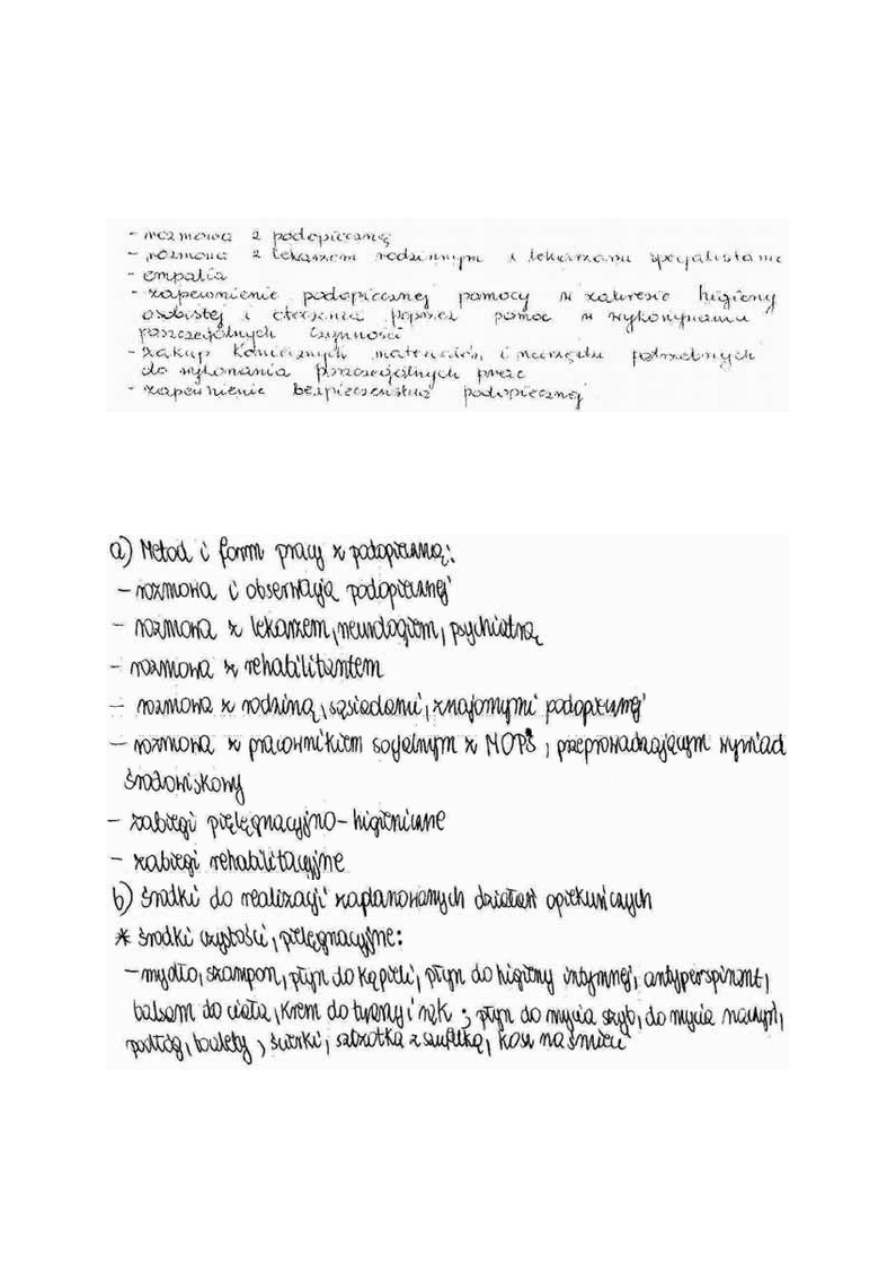 - rozmowa z podopieczną
- rozmowa z lekarzem rodzinnym i lekarzami specjalistami
- empatia
- zapewnienie podopiecznej pomocy w zakresie higieny
osobistej i otoczenia poprzez pomoc w wykonywaniu
poszczególnych czynności
- zakup koniecznych materiałów i narzędzi potrzebnych
do wykonania poszczególnych prac
- zapewnienie bezpieczeństwa podopiecznej
a) Metod i form pracy z podopieczną:
- rozmowa i obserwacja podopiecznej
- rozmowa z lekarzem, neurologiem, psychiatrą
- rozmowa z rehabilitantem
- rozmowa z rodziną, sąsiadami, znajomymi podopiecznej
- rozmowa z pracownikiem socjalnym z MOPS, przeprowadzającym wywiad
środowiskowy
- zabiegi pielęgnacyjno-higieniczne
- zabiegi rehabilitacyjne
b) środki do realizacji zaplanowanych działań opiekuńczych
* środki czystości, pielęgnacyjne:
- mydło, szampon, płyn do kąpieli, płyn do higieny intymnej, antyperspirant,
balsam do ciała, krem do twarzy i rąk ; płyn do mycia szyb, do mycia naczyń,
podłóg, toalety, ścierki, szczotka z szufelką, kosz na śmieci